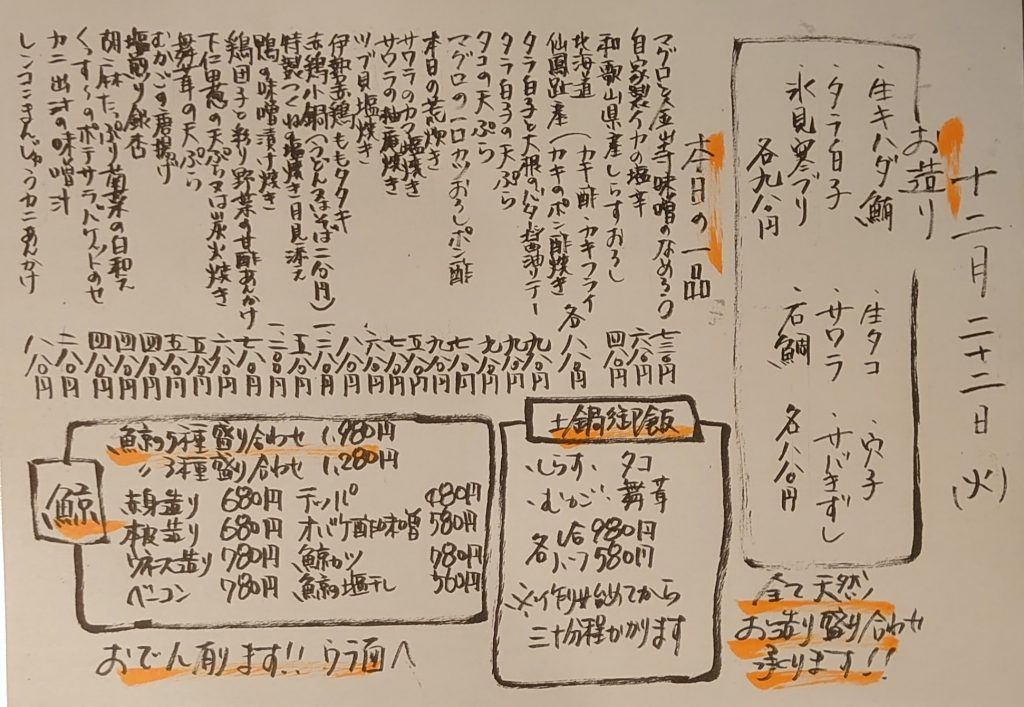 十二月二十二日(火)
お造り
・生キハダ鮪 ・生タコ ・穴子
・タラ白子 ・サワラ ・サバきずし
・氷見寒ブリ ・石鯛
各九八〇円 各八八〇円
全て天然
お造り盛り合わせ
承ります!!
本日の一品
マグロと金山寺味噌のなめろう 七三〇円
自家製イカの塩辛 六八〇円
和歌山県産しらすおろし 四八〇円
北海道 (カキ酢・カキフライ
仙鳳趾産 (カキのポン酢焼き 各八八〇円
タラ白子と大根のバター醤油ソテー 九八〇円
タラ白子の天ぷら 九八〇円
タコの天ぷら 九八〇円
マグロの一口カツおろしポン酢 七八〇円
本日の荒炊き 九八〇円
サワラのカマ塩焼き 五八〇円
サワラの柚庵焼き 九八〇円
ツブ貝塩焼き 六八〇円
伊勢赤鶏ももタタキ 八八〇円
赤鶏小鍋(うどん又はそば二八〇円) 一二八〇円
特製つくねの塩焼き月見添え 五八〇円
鴨の味噌漬け焼き 一二八〇円
鶏団子と彩り野菜の甘酢あんかけ 七八〇円
下仁田葱の天ぷら又は炭火焼き 六八〇円
舞茸の天ぷら 五八〇円
むかごの唐揚げ 五八〇円
塩煎り銀杏 四八〇円
胡麻たっぷり菊菜の白和え 四八〇円
くんす〜のポテサラバゲットのせ 四八〇円
カニ出汁の味噌汁 二八〇円
レンコンまんじゅうカニあんかけ 八八〇円
土鍋御飯
・しらす・タコ
・むかご・舞茸
各 1合980円
ハーフ580円
※作り始めてから
三十分程かかります
鯨
鯨の5種盛り合わせ 1,980円
〃3種盛り合わせ 1,280円
赤身造り 680円 テッパ 480円
本皮造り 680円 オバケ酢味噌 580円
ウネス造り 780円 鯨カツ 780円
ベーコン 780円 鯨の塩干し 560円
おでん有ります!! ウラ面へ